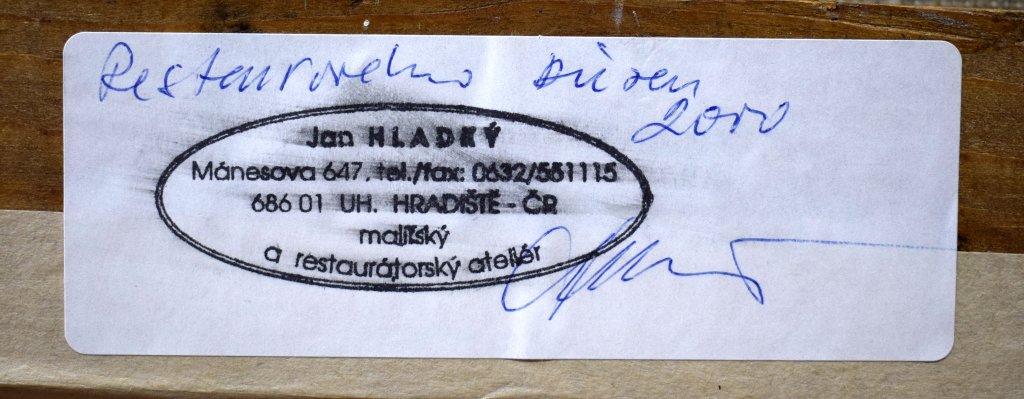 Restaurováno březen
2000
Jan HLADKÝ
Mánesova 647, tel./fax: 0632/551115
686 01 UH. HRADIŠTĚ - ČR
malířský
a restaurátorský ateliér